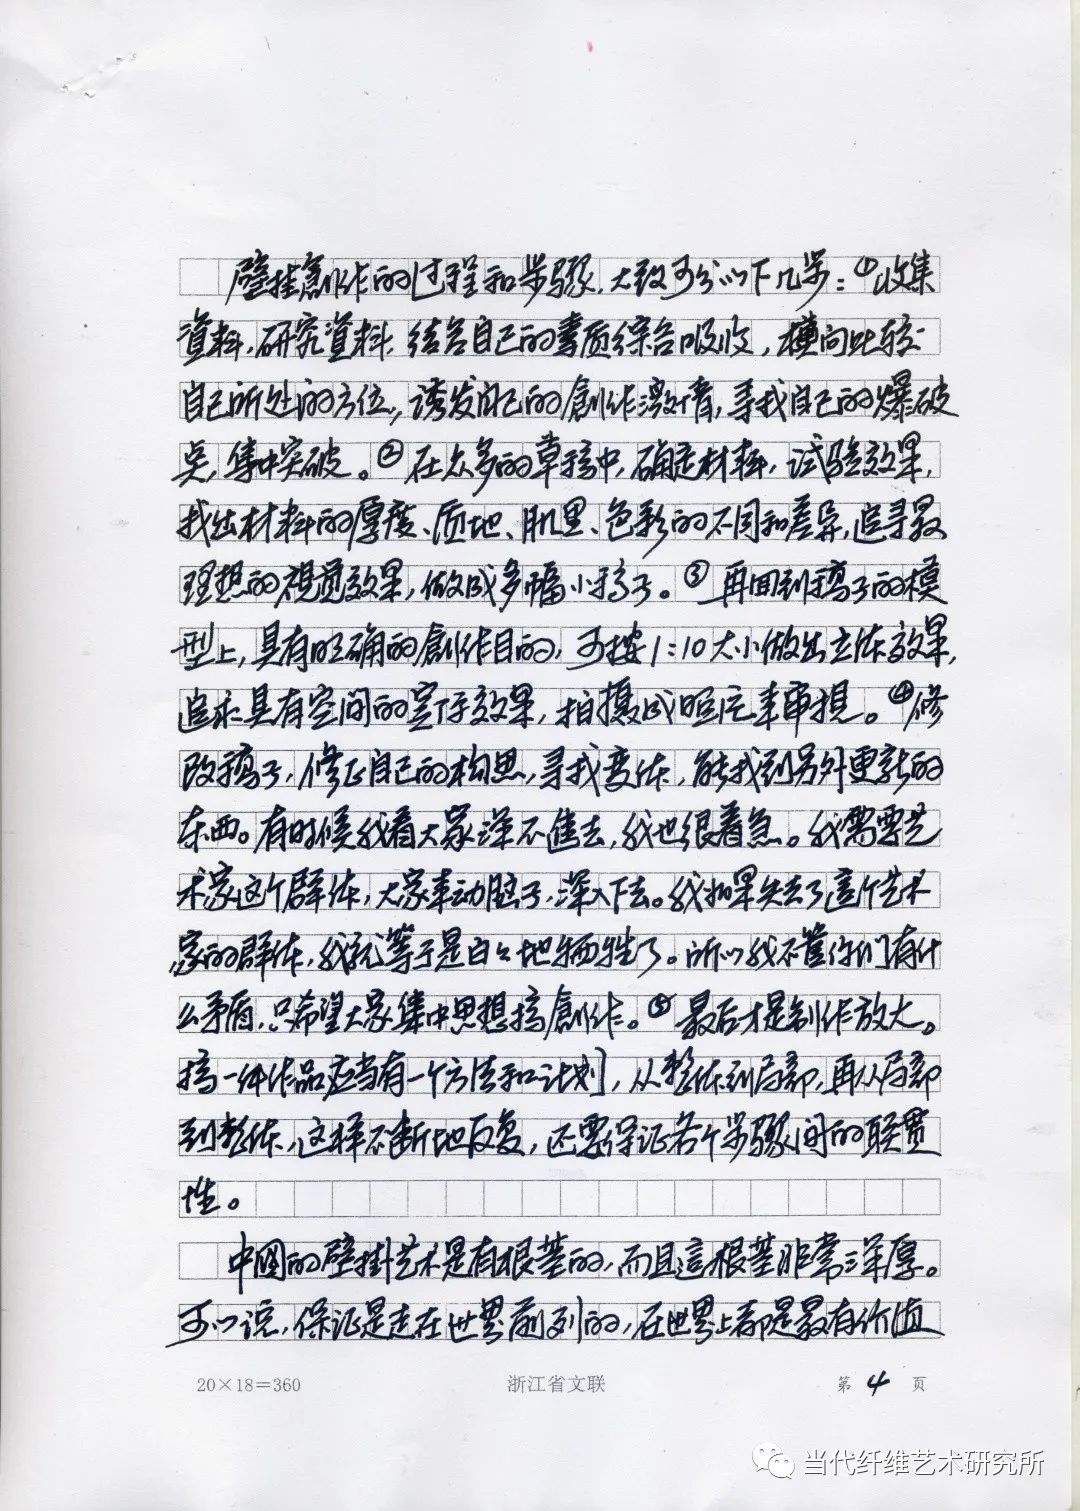 壁挂創作的过程和步骤，大致可分以下几步：①收集
資料，研究資料，结合自己的素质综合吸收，横向比较
自己所处的方位，诱发自己的創作激情，寻找自己的爆破
点，集中突破。②在众多的草稿中，确定材料，试验效果，
找出材料的厚度、质地、肌里、色彩的不同和差异，追寻最
理想的視覚效果，做成多幅小稿子。③再回到稿子的模
型上，具有明确的創作目的，可按1:10大小做出立体效果，
追求具有空间的室厅效果，拍摄成照片来审視。④修
改稿子，修正自己的构思，寻找变体，能找到另外更新的
东西。有时候我看大家深不進去，我也很着急。我需要艺
术家这个群体，大家来动脑子，深入下去。我如果失去了這个艺术
家的群体，我就等于是白白地牺牲了。所以我不管你们有什
么矛盾，只希望大家集中思想搞創作。⑤最后才是制作放大。
搞一件作品应当有一个方法和计划，从整体到局部，再从局部
到整体，这样不断地反复，还要保证各个步骤间的联贯
性。
中國的壁掛艺术是有根基的，而且這根基非常深厚。
可以说，保证是走在世界前列的，在世界上都是最有价值
20×18=360 浙江省文联 第 4 页
当代纤维艺术研究所